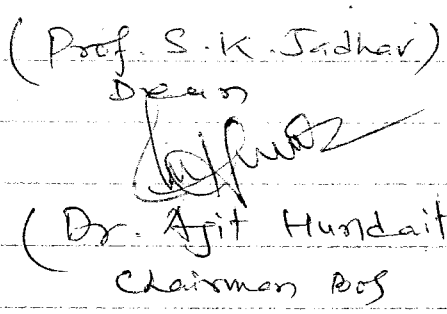 (Prof. S. K. Jadhav)
Dean
(Dr. Ajit Hundait
Chairman BoS